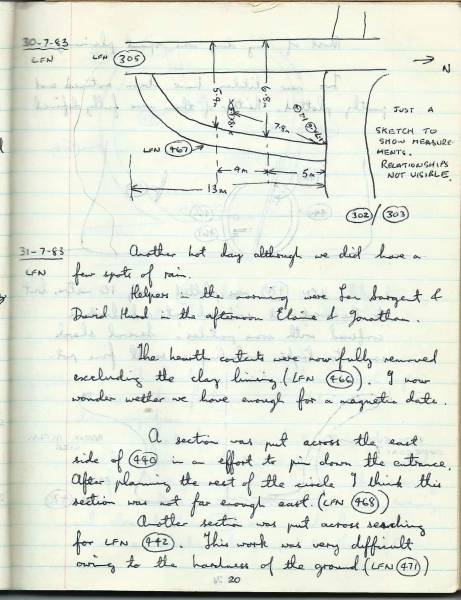 30-7-83
LFN
LFN 305
N
5·9m
6·8m
7·8m
LFN 467
4m
5m
13m
JUST A
SKETCH TO
SHOW MEASURE
MENTS.
RELATIONSHIPS
NOT VISIBLE.
302/303
31-7-83
LFN
Another hot day although we did have a
few spots of rain.
Helpers in the morning were Len Sargent &
David Hurd in the afternoon Elaine & Jonathan.
The hearth contents were now fully removed
excluding the clay lining (LFN 466). I now
wonder wether we have enough for a magnetic date.
A section was put across the east
side of 440 in an effort to pin down the entrance.
After planning the rest of the circle I think this
section was not far enough east. (LFN 468)
Another section was put across searching
for LFN 442. This work was very difficult
owing to the hardness of the ground (LFN 471)
20